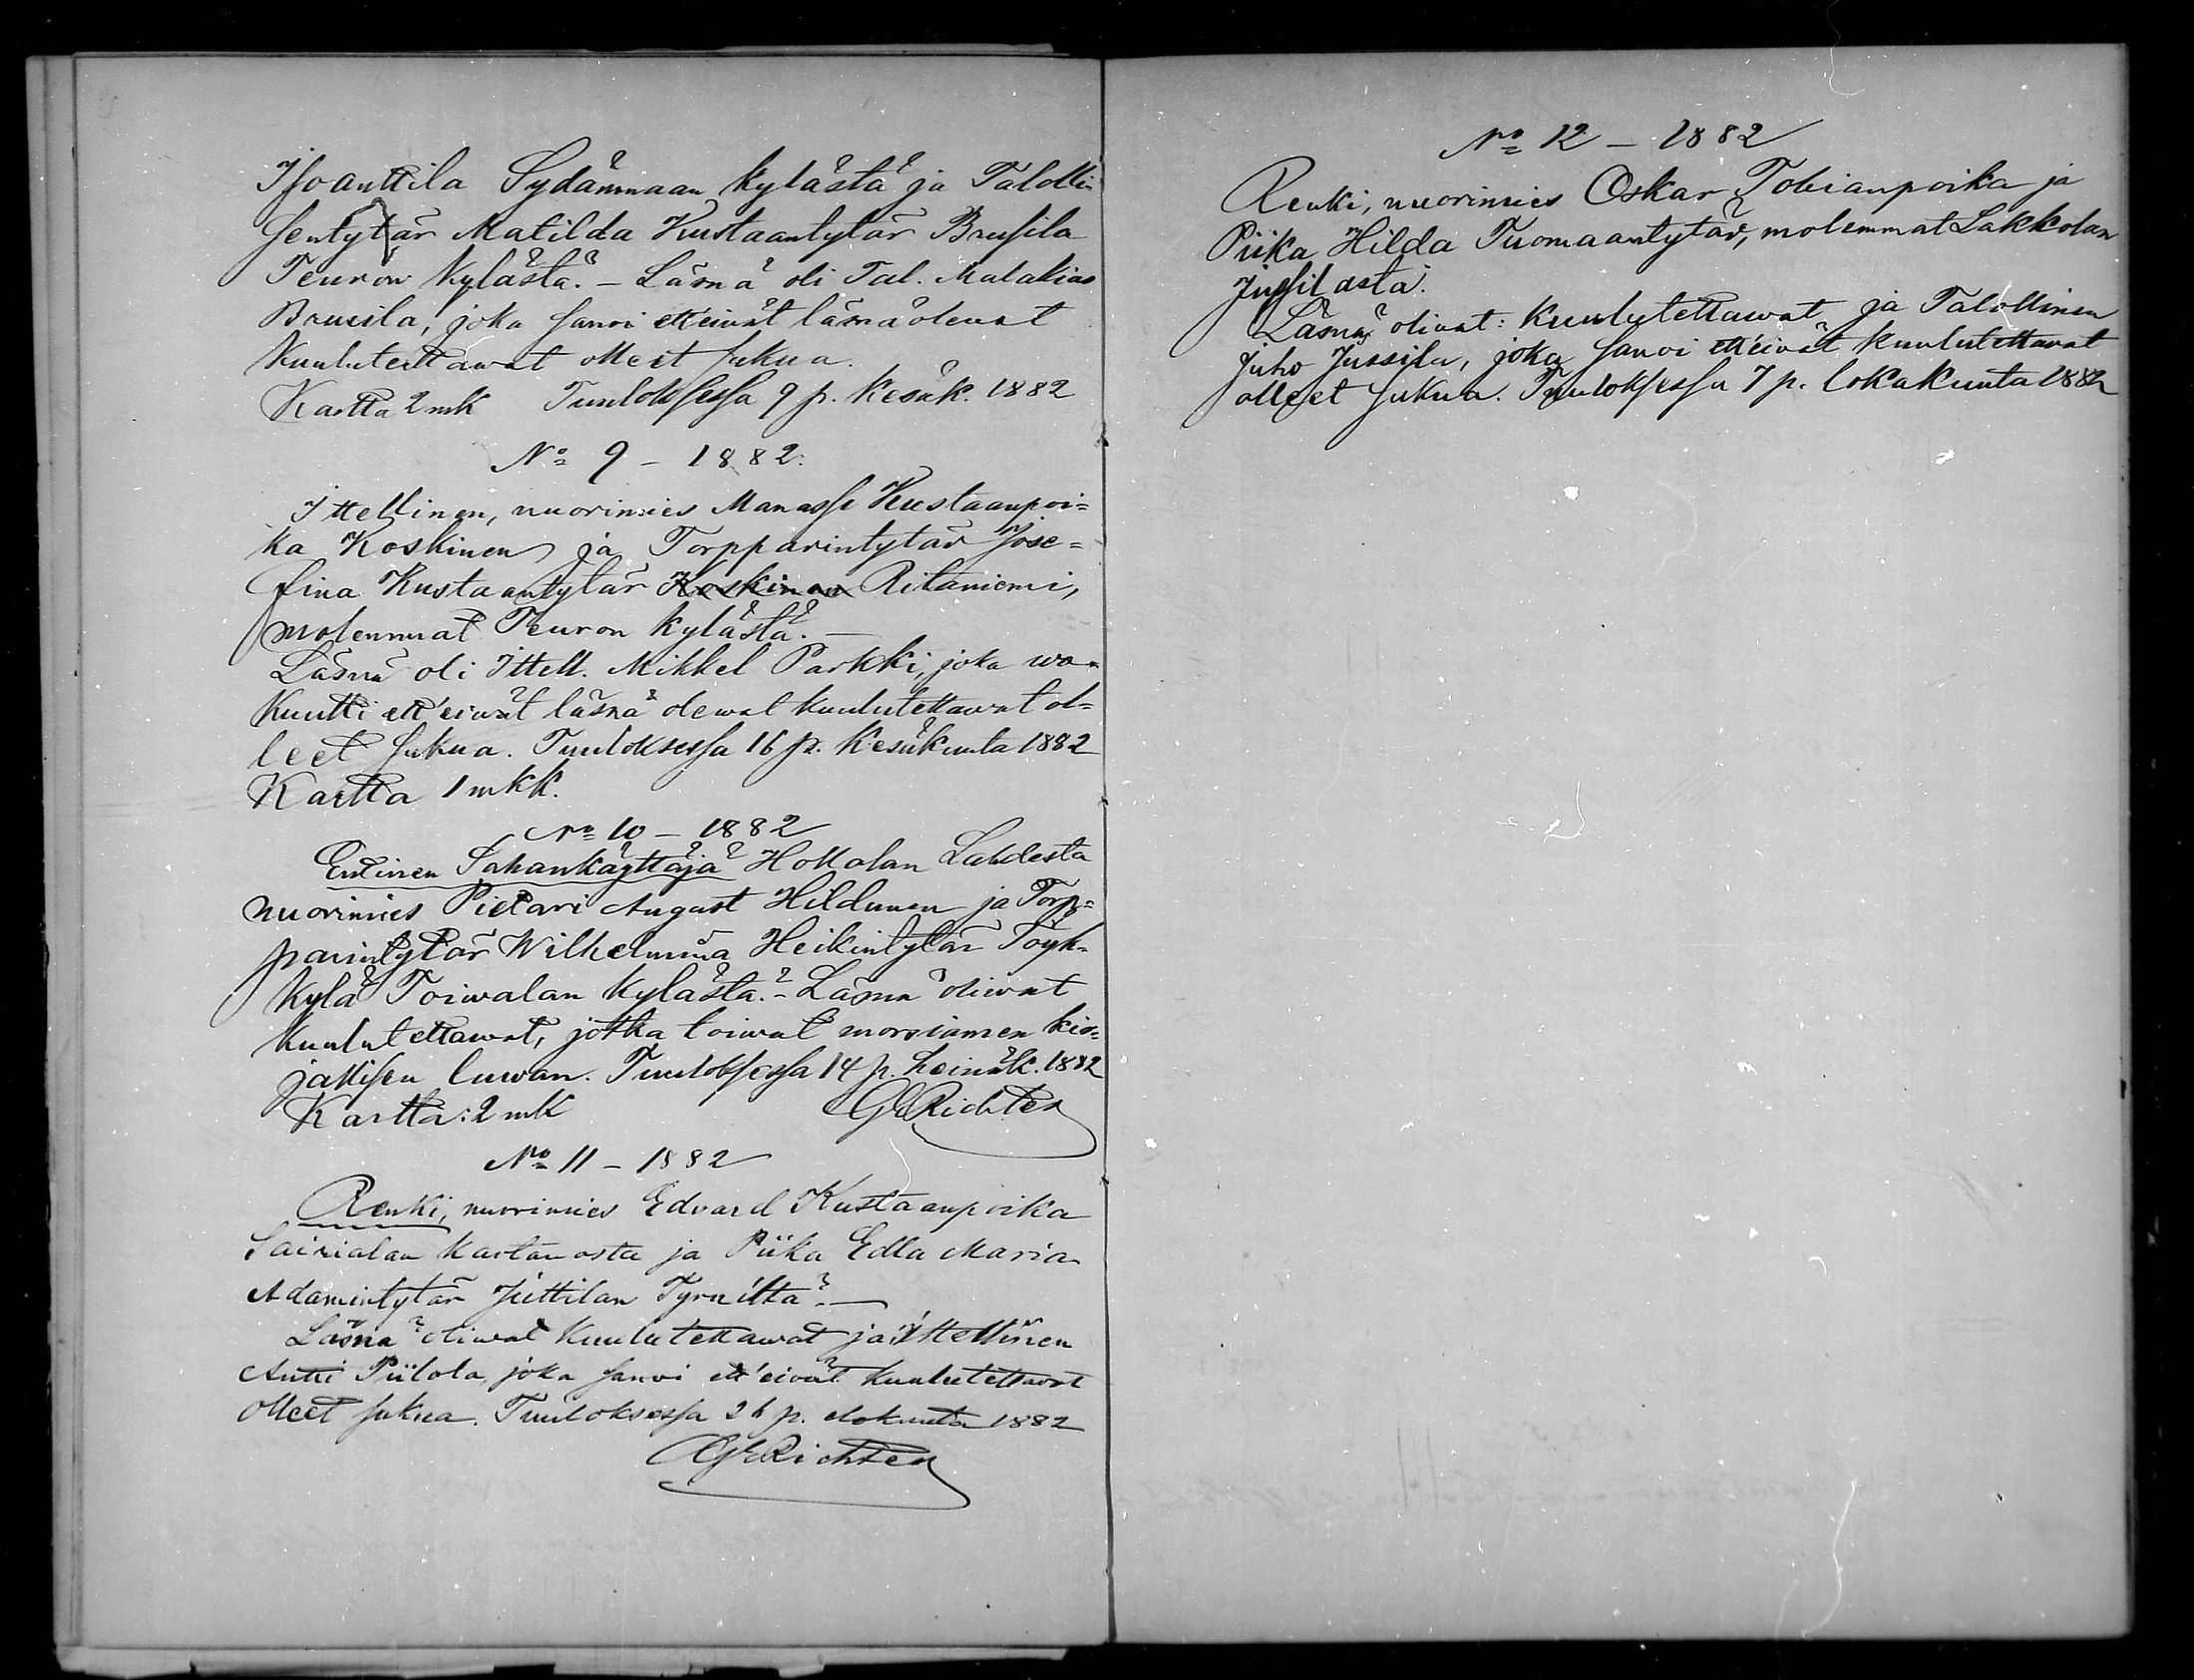 Isoanttila Sydänmaan kylästä ja Talolli-
sentytär Matilda Kustaantytär Brusila
Teuron kylästä. – Läsnä oli Tal. Malakias
Brusila, joka sanoi ett'eivät läsnä olevat
kuulutettawat olleet sukua.
Kartta 2 mk Tuuloksessa 9 p. Kesäk. 1882
No 9 – 1882.
Ittellinen, nuorimies Manasse Kustaanpoi=
ka Koskinen ja Torpparintytär Jose=
fina Kustaantytär Koskinen Ritaniemi,
molemmat Teuron kylästä. –
Läsnä oli Ittell. Mikkel Parkki, joka wa=
kuutti ett'eiwät läsnä olewat kuulutettawat ol=
leet sukua. Tuuloksessa 16 p. Kesäkuuta 1882
Kartta 1 mkk.
No 10 – 1882
Entinen Sahankäyttäjä Hollolan Lahdesta
nuorimies Pietari August Hildunen ja Torp=
parintytär Wilhelmina Heikintytär Töyk=
kylä Toiwalan kylästä. – Läsnä oliwat
kuulutettawat, jotka toiwat morsiamen kir=
jallisen luwan. Tuuloksessa 14 p. heinäk. 1882
Kartta: 2 mk GERichter
No 11 – 1882
Renki, nuorimies Edvard Kustaanpoika
Sairialan kartanosta ja Piika Edla Maria
Adamintytär Juttilan Tyrniltä. –
Läsnä oliwat kuulutettawat ja Ittellinen
Antti Piilola, joka sanoi ett'eivät kuulutettavat
olleet sukua. Tuuloksessa 26 p. elokuuta 1882
GERichter
No 12 – 1882
Renki, nuorimies Oskar Tobianpoika ja
Piika Hilda Tuomaantytär, molemmat Lakkolan
Jussilasta.
Läsnä olivat: kuulutettawat ja Talollinen
Juho Jussila, joka sanoi ett'eivät kuulutettavat
olleet sukua. Tuuloksessa 7 p. lokakuuta 1882